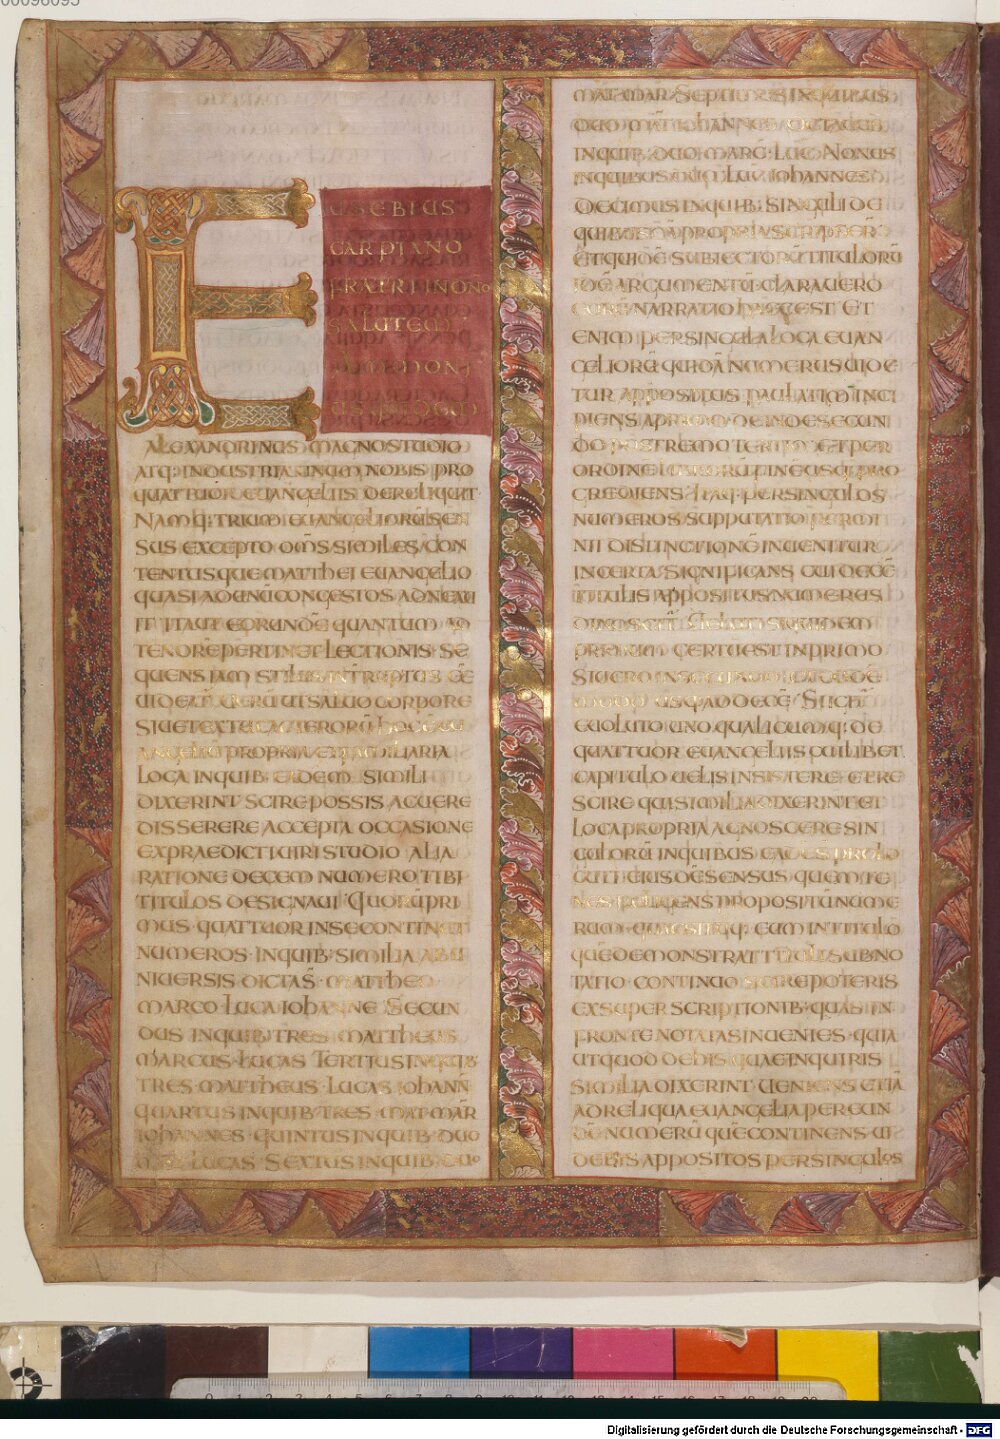 00096095
EUSEBIUS
CARPIANO
FRATRI INDNO
SALUTEM
AMMONI
US QUIDEM
ALEXANDRINUS MAGNO STUDIO
ATQ: INDUSTRIA UNUM NOBIS PRO
QUATTUOR EUANGELIIS DERELIQUIT
NAMQ: TRIUM EUANGELIORŪ SEN
SUS EXCEPTO OMS SIMILES CON
TENTUSQUE MATTHEI EUANGELIO
QUASI AD
IT ITAUT EORUNDĒ QUANTUM AD
TENORĒ PERTINET LECTIONIS SE
QUENS IAM STILUS INTRRUPTUS ĒĒ
UIDEAT UERŪ UT SALUO CORPORE
SIUE TEXTU CAETERORŪ HOC EU
ANGELIŌ PROPRIA ET FAMILIARIA
LOCA IN QUIB: EADEM SIMILI
DIXERINT SCIRE POSSIS AC UERE
DISSERERE ACCEPTA OCCASIONE
EX PRAEDICTI UIRI STUDIO ALIA
RATIONE DECEM NUMERO TIBI
TITULOS DESIGNAUI QUORŪ PRI
MUS QUATTUOR IN SE CONTINET
NUMEROS IN QUIB: SIMILIA AB U
NIUERSIS DICTA S̄ MATTHEO
MARCO LUCA IOHANNE SECUN
DUS IN QUIB: TRES MATTHEUS
MARCUS LUCAS TERTIUS IN QUIB:
TRES MATTHEUS LUCAS IOHANN
QUARTUS IN QUIB: TRES MAT MAR
IOHANNES QUINTUS IN QUIB: DUO
MAT LUCAS SEXTUS IN QUIB: DUO
MAT MAR SEPTIMUS IN QUIBUS
DUO MAT IOHANNES OCTAUUS
IN QUIB: DUO MARC LUC NONUS
IN QUIBUS DUO LUC IOHANNES
DECIMUS IN QUIB: SINGULI DE
QUIBUSDĀ PROPRIAE SCRIPSER
ET QUIDĒ SUBIECTORŪ TITULORŪ
IDĒ ARGUMENTŪ CLARA UERO
EORŪ NARRATIO HAEC EST ET
ENIM PER SINGULA LOCA EUAN
GELIORŪ QUIDĀ NUMERUS UIDE
TUR APPOSITUS PAULATIM INCI
PIENS A PRIMO DEINDE SECUN
DO POSTREMO TERTIO ET PER
ORDINE LIBRORŪ FINE USQ: PRO
GREDIENS ITAQ: PER SINGULOS
NUMEROS SUPPUTATIO PER MI
NII DISTINCTIONĒ INUENITUR
INSERTA SIGNIFICANS CUI DE DECĒ
TITULIS APPOSITUS NUMERUS
DINOSCATR UELUTI SI QUIDEM
PRIMUM CERTŪ EST IN PRIMO
SI UERO IN SECUNDO
MODO USQ: AD DECĒ SI IGIT
EUOLUTO UNO QUALICUMQ: DE
QUATTUOR EUANGELIIS CUILIBET
CAPITULO UELIS INSISTERE ET RE
SCIRE QUI SIMILIA DIXERINT ET
LOCA PROPRIA AGNOSCERE SIN
GULORŪ IN QUIBUS EADĒ S̄ PROLO
CUTI EIUSDĒ SENSUS QUEM TE
NES RELEGENS PROPOSITŪ NUME
RUM QUAESITUMQ: EUM IN TITULO
QUĒ DEMONSTRAT TITULI SUBNO
TATIO CONTINUO SCIRE POTERIS
EX SUPERSCRIPTIONIB: QUAS IN
FRONTE NOTATAS INUENIES QUI A
UT QUOD DE HIS QUAE INQUIRIS
SIMILIA DIXERINT UENIENS ETIĀ
AD RELIQUA EUANGELIA PER EUN
DĒ NUMERŪ QUĒ CONTINENS UI
DEBIS APPOSITOS PER SINGULOS
Digitalisierung gefördert durch die Deutsche Forschungsgemeinschaft - DFG